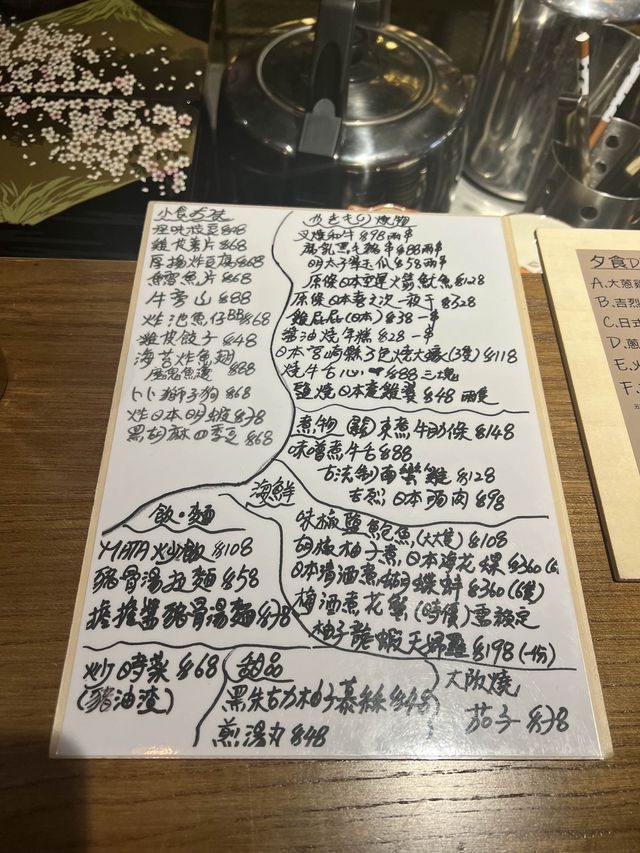 小食
味枝豆 $48
雞皮薯片 $68
厚揚炸豆腐 $68
鱈魚片 $68
牛蒡山 $88
炸池魚仔BB $68
雞皮餃子 $48
海苔炸魚翅
魔鬼魚邊 $88
卜卜獅子狗 $68
炸日本明蝦 $78
黑胡麻四季豆 $68
やきもの 燒物
叉燒和牛 $98 兩串
腐乳黑毛豬串 $88 兩串
明太子翠玉瓜 $58 兩串
原條日本空運火箭魷魚 $128
原條日本喜之次一夜干 $328
雞屁屁(日本) $38 一串
醬油燒年糕 $28 一串
日本宮崎縣3色燒大蠔(3隻) $118
燒牛舌心 $88 三塊
鹽燒日本產雞翼 $48 兩隻
煮物 關東煮牛助條 $148
味噌煮牛舌 $88
古法制南蠻雞 $128
吉烈日本豚肉 $98
海鮮
味椒鹽鮑魚(大大隻) $108
胡椒柚子煮日本海花螺 $360
日本清酒煮蝴蝶蚌 $360(6隻)
梅酒煮花蟹(時價)需預定
柚子龍蝦天婦羅 $198(一份)
飯·麵
MATA炒飯 $108
豬骨湯拉麵 $58
擔擔醬豬骨湯麵 $78
炒時菜 $68
(豬油渣)
甜品
黑朱古力柚子慕絲 $48
煎湯丸 $48
大阪燒
茄子 $78
夕食
A.大蔥
B.吉烈
C.日式
D.蔥
E.
F.